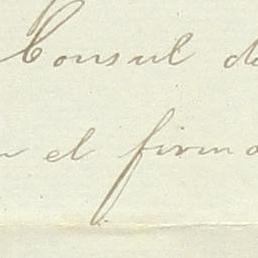 Consul de
n el firma